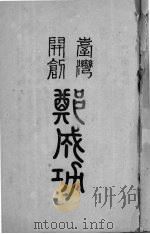 臺灣
開創
鄭成功
www.mtoou.info